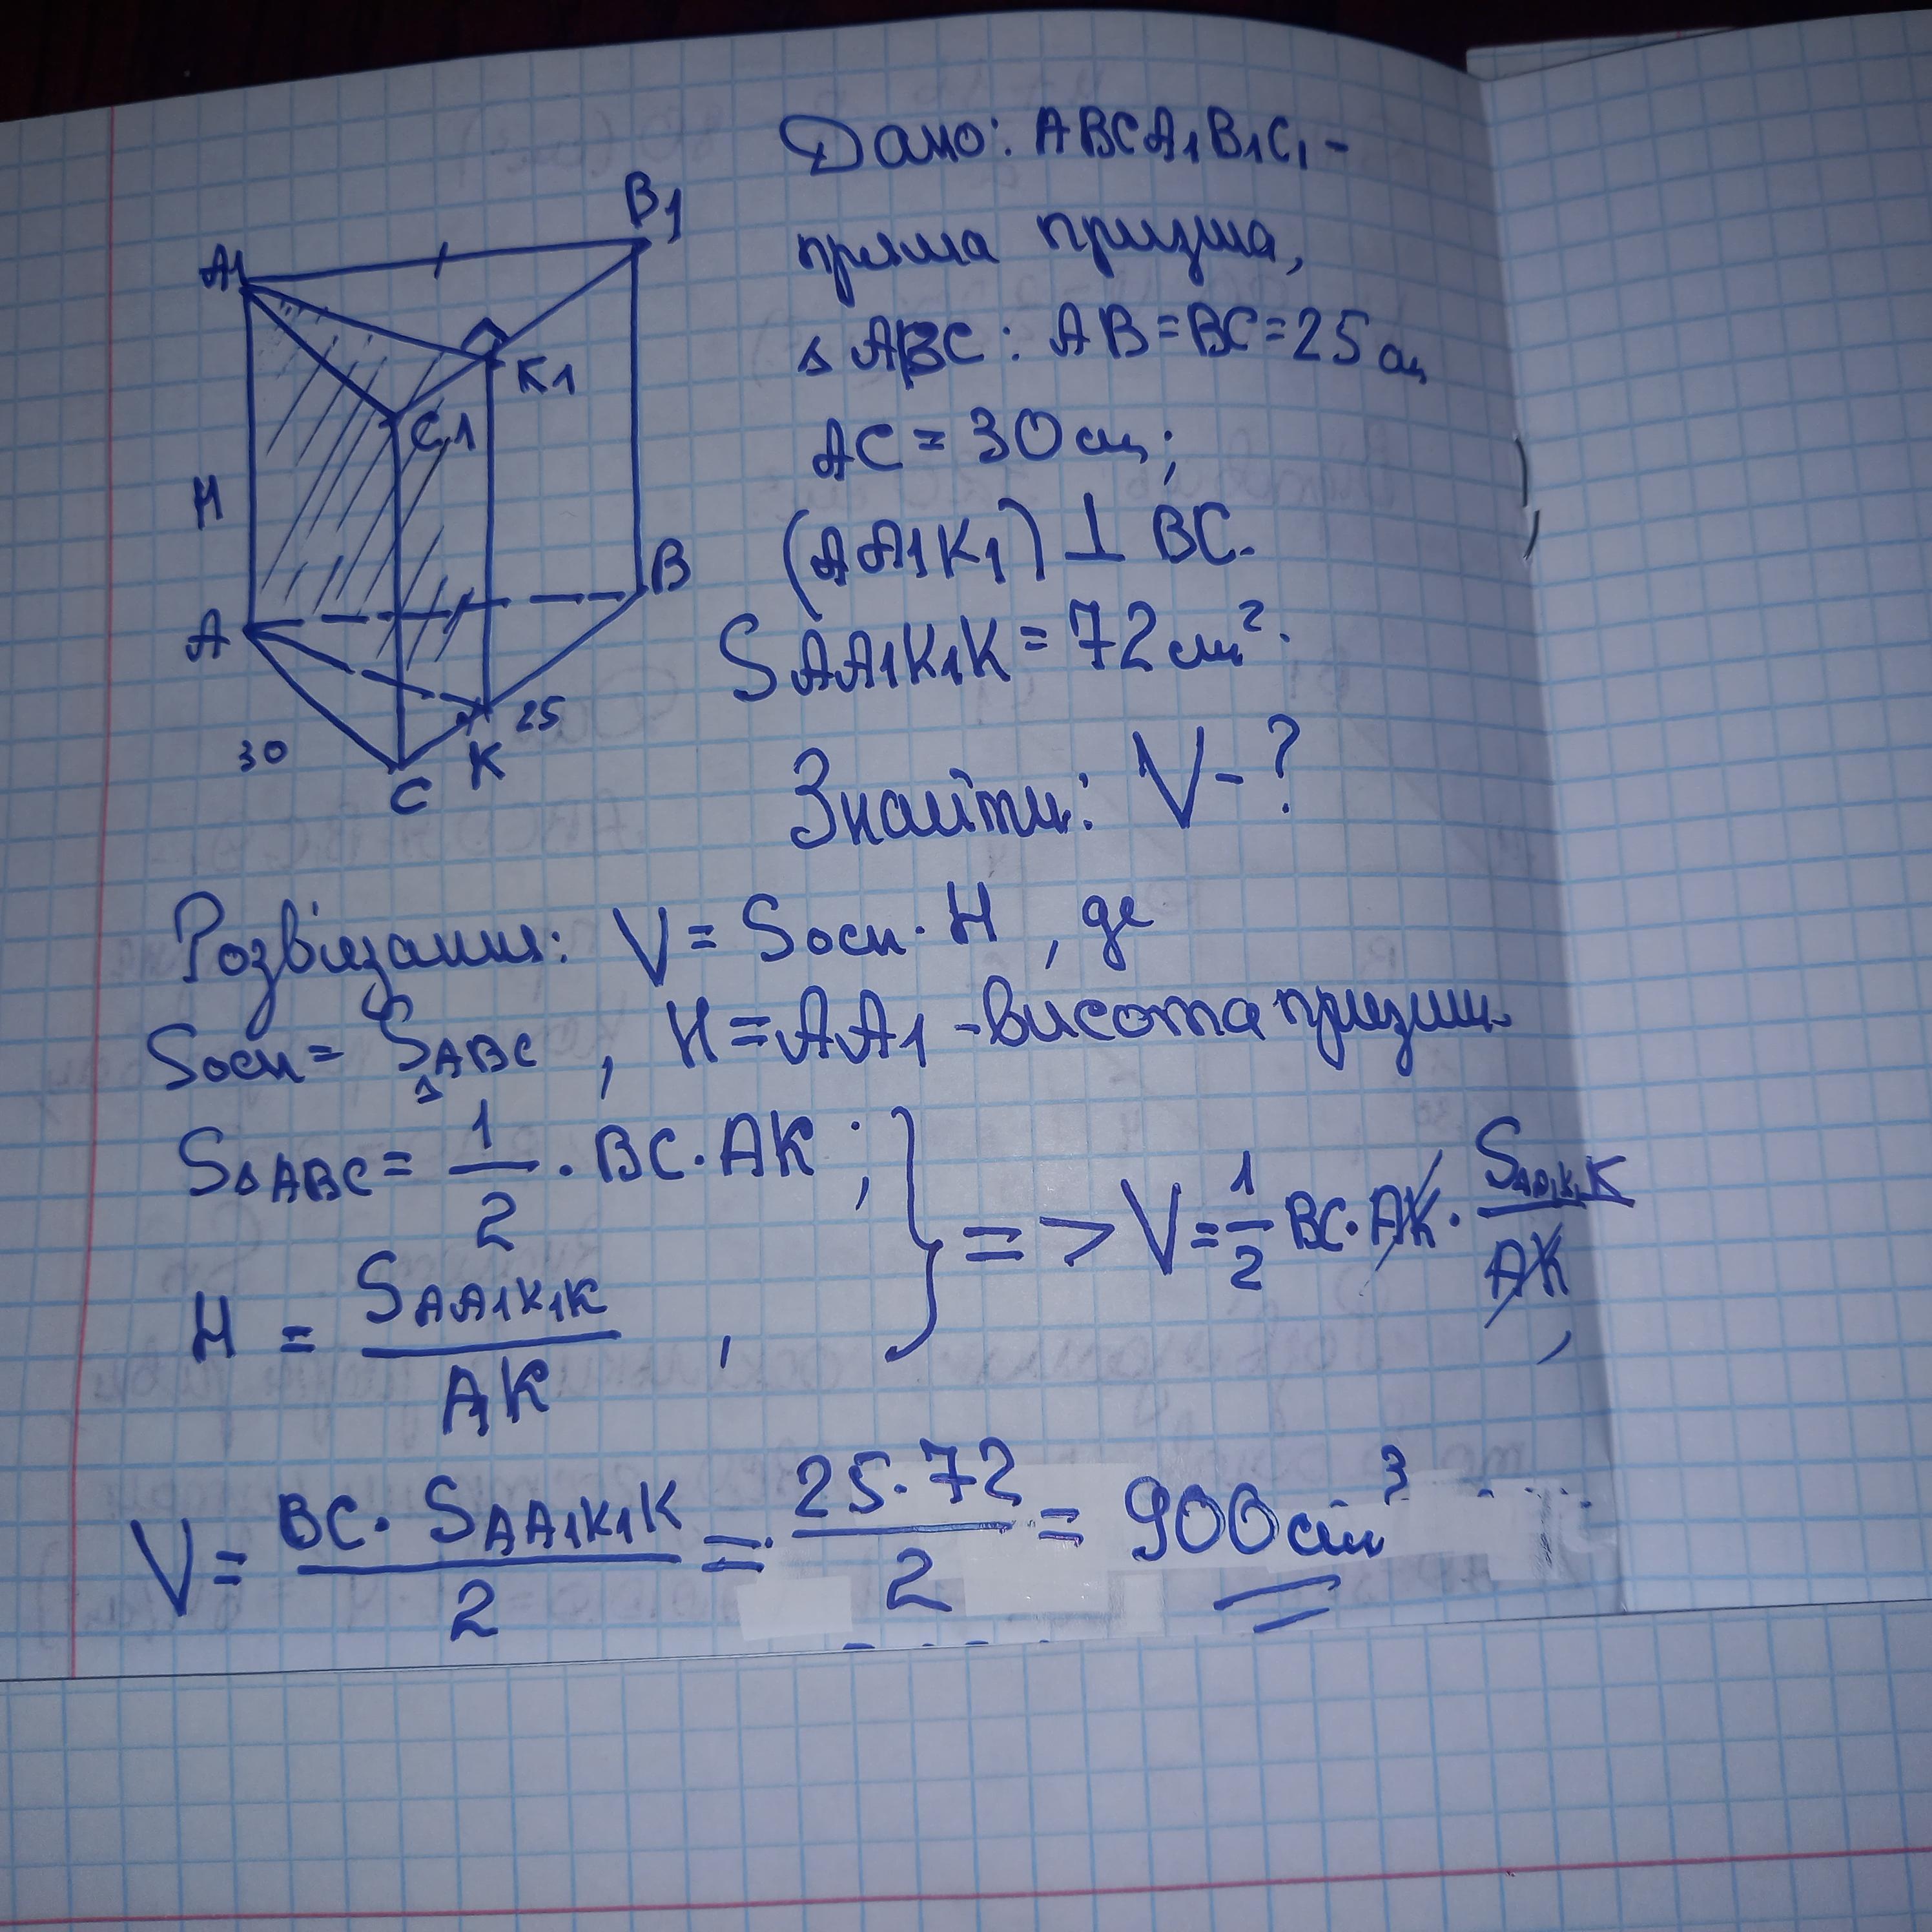 Дано: ABCA1B1C1 -
пряма призма,
△ ABC: AB = BC = 25 см
AC = 30 см;
(AA1K1) ⊥ BC.
SAA1K1K = 72 см².
Знайти: V - ?
B1
A1
K1
C1
H
B
A
25
30
K
C
Розв'язання: V = Sосн · H, де
Sосн = S△ABC, H = AA1 - висота призми.
S△ABC = 1/2 · BC · AK;
H = SAA1K1K / AK, } => V = 1/2 BC · AK · SAA1K1K / AK,
V = BC · SAA1K1K / 2 = 25 · 72 / 2 = 900 см³